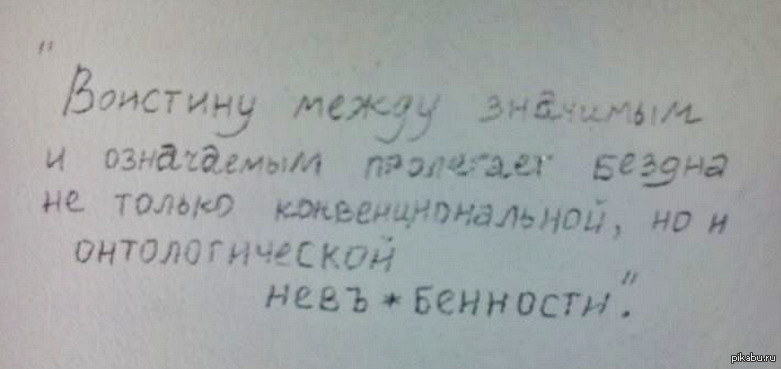 "
Воистину между значимым
и означаемым пролегает бездна
не только конвенциональной, но и
онтологической
невъ*бенности".
pikabu.ru